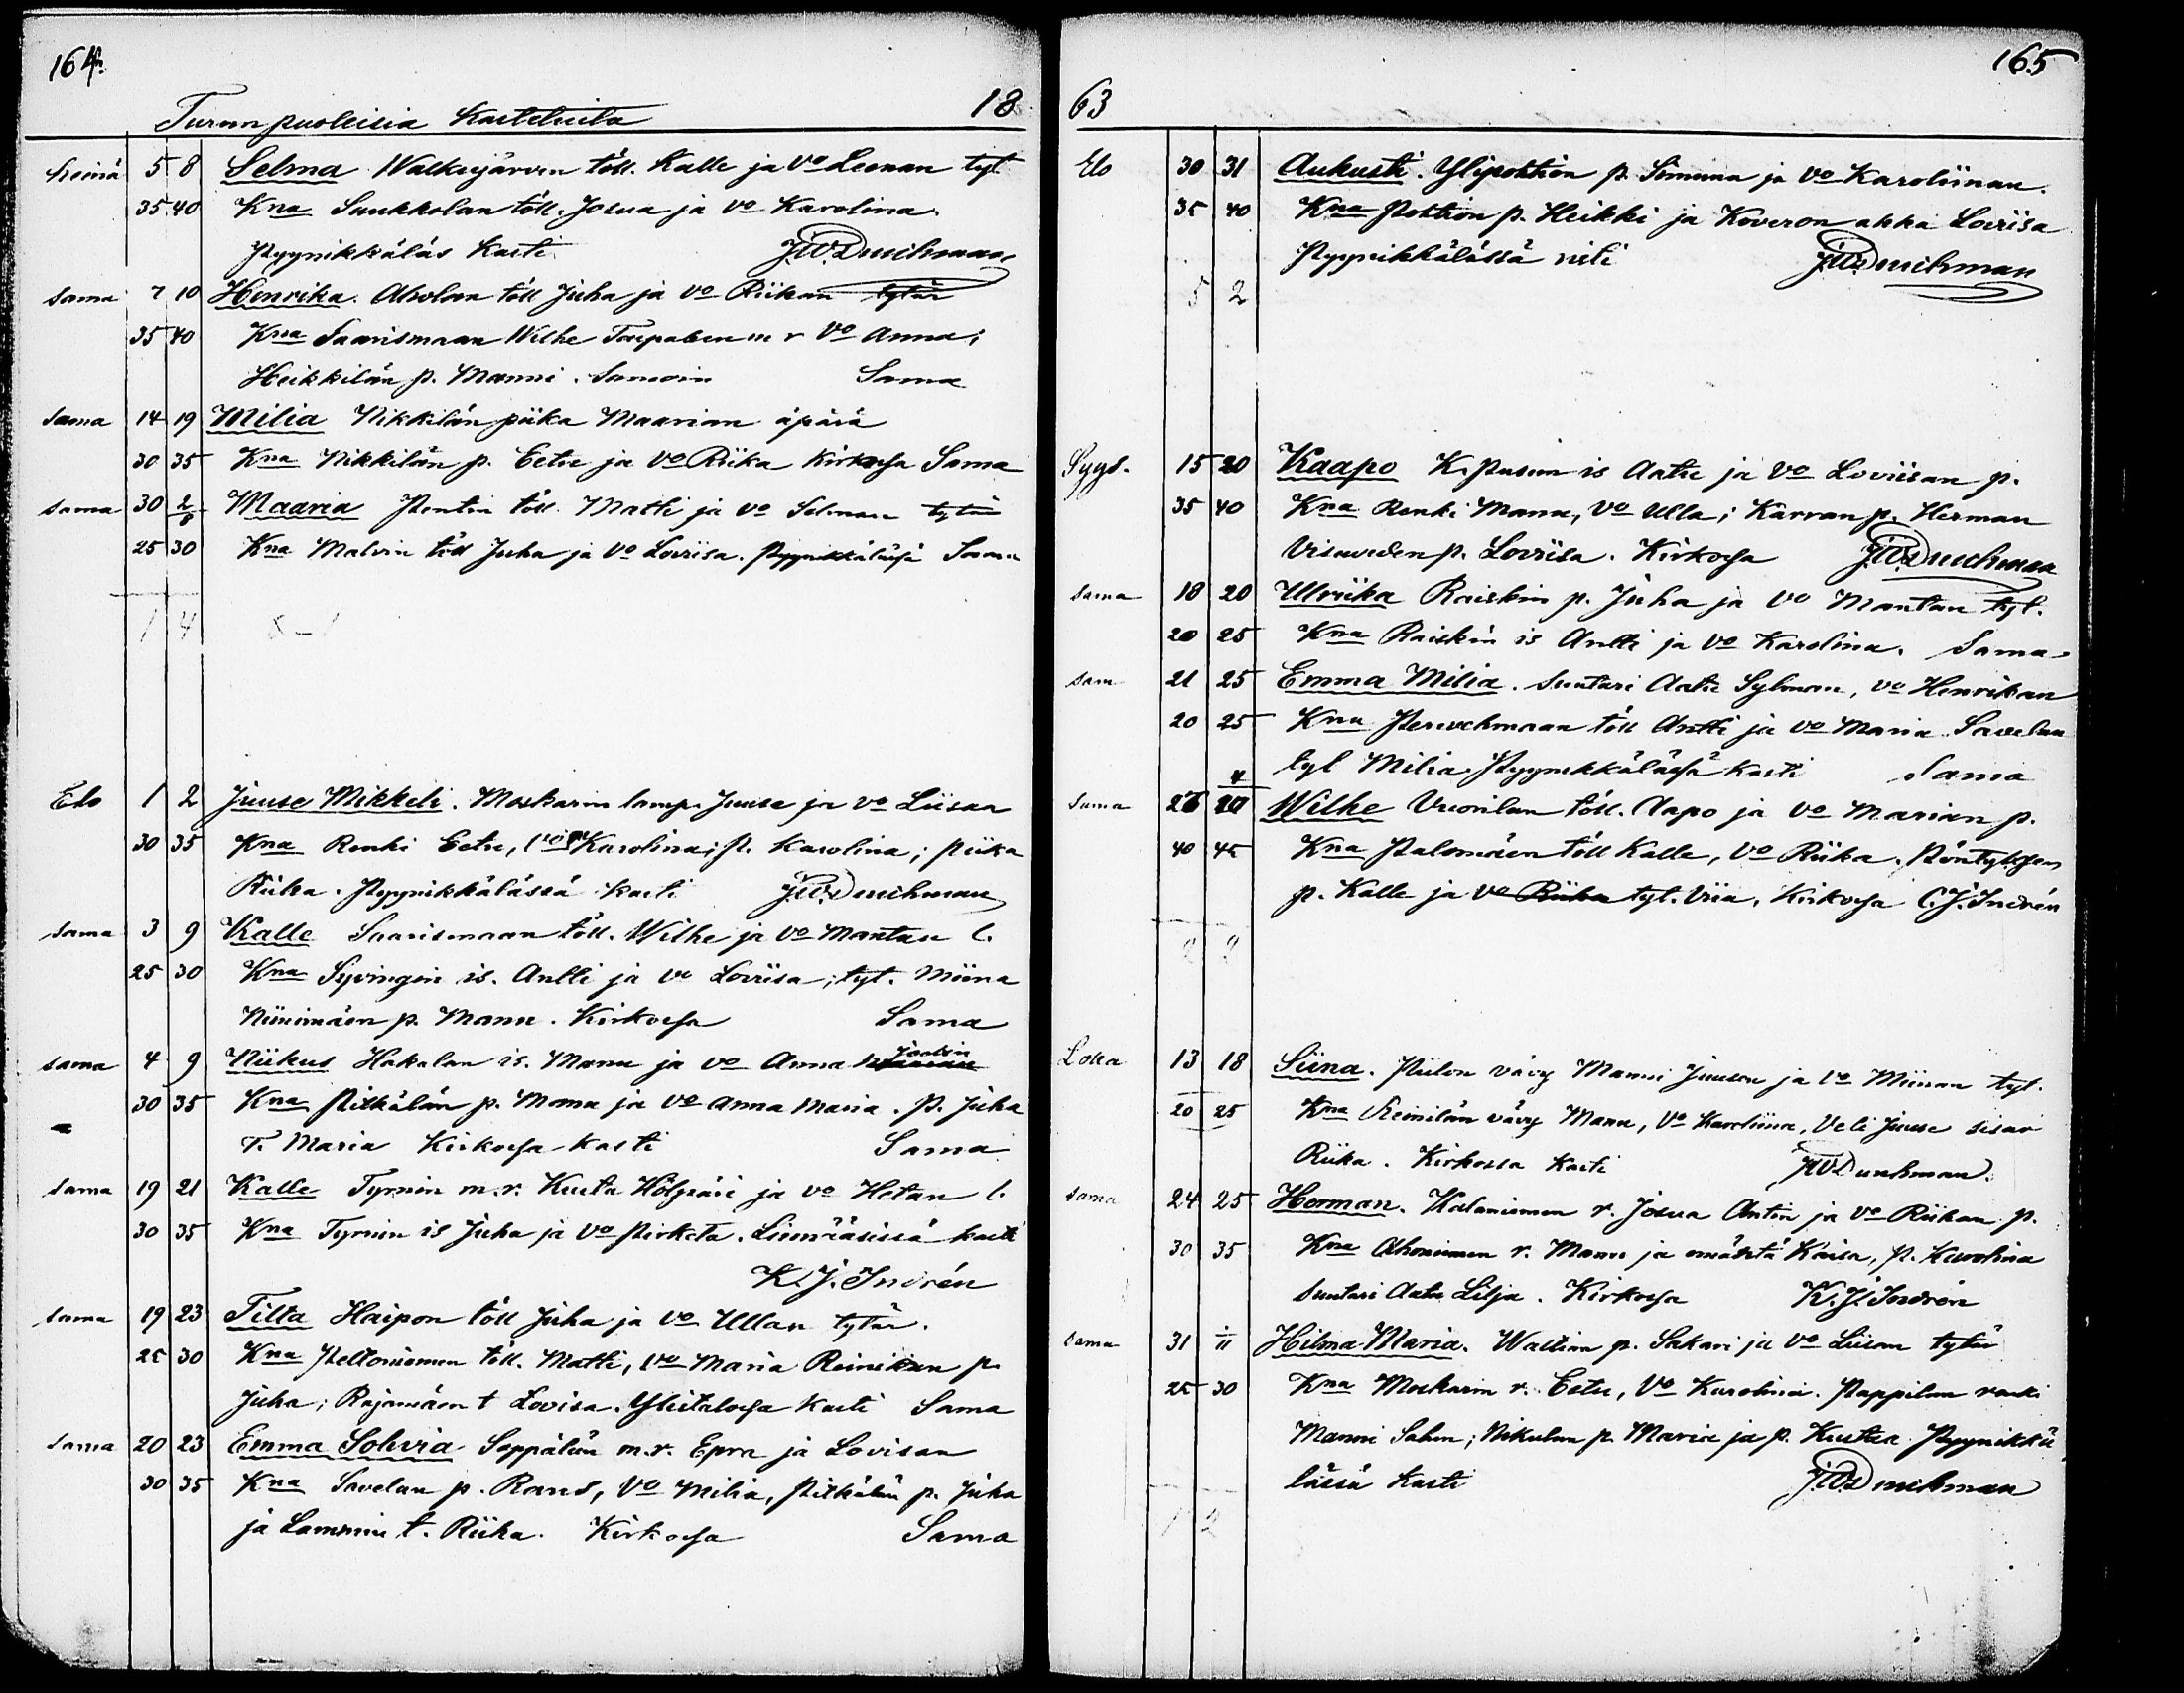 164.
Turun puolisia Kasteluita 18
heinä 5 8 Selma Walkejärven töll. Kalle ja Vo Leenan tyt
35 40 Kna Suukkolan töll. Josua ja Vo Karolina.
Pyynikkäläs kasti J.W.Durchman
sama 7 10 Henrika. Aholan töll Juha ja Vo Riikan tytär
35 40 Kna Saarismaan Wilhe m r Vo Anna;
Heikkilän p. Manni. Samoin Sama
sama 14 19 Milia Nikkilän piika Maarian äpärä
30 35 Kna Nikkilän p. Eetu ja Vo Riika Kirkossa Sama
sama 30 2/8 Maaria Pentin töll Matti ja Vo Selman tytär
25 30 Kna Malvin töll Juha ja Vo Loviisa. Pyynikkälässä Sama
1 4
Elo 1 2 Juuse Mikkeli. Moskarin lamp. Juuse ja vo Liisan
30 35 Kna Renki Eetu, Vo Karolina; p. Karolina; piika
Riika. Pyynikkälässä kasti J.W.Durchman
sama 3 9 Kalle Saarismaan töll. Wilhe ja Vo Mantan l.
25 30 Kna Syvingin is. Antti ja Vo Loviisa; tyt. Miina
Niinimäen p. Manu. Kirkossa Sama
sama 4 9 Niikus Hakalan is. Manu ja Vo Anna
30 35 Kna Pitkälän p. Manu ja Vo Anna Maria. p. Juha
T. Maria Kirkossa kasti Sama
sama 19 21 Kalle Tyrnin m.r. Kusta Hölpäri ja vo Hetan l.
30 35 Kna Tyrnin is Juha ja Vo Pirketa. kasti
K.J. Indrén
sama 19 23 Tilta Haipon töll Juha ja Vo Ullan tytär.
25 30 Kna Peltoniemen töll. Matti, Vo Maria Reinikan p.
Juha; Rajamäen t Lovisa. Ylistalossa kasti Sama
sama 20 23 Emma Sohvia Seppälän m.r. Epra ja Lovisan
30 35 Kna Savelan p. Rand, Vo Milia, Pitkälän p. Juha
ja Lammin t. Riika. Kirkossa Sama
165
63
Elo 30 31 Aukusti. Ylipohtion p. Simuna ja Vo Karoliinan.
35 40 Kna Pohtion p. Heikki ja Koveron akka Loviisa
Pyynikkälässä J.W.Durchman
5 2
Syys. 15 20 Kaapo K. is Aatu ja Vo Loviisan p.
35 40 Kna Renki Manu, Vo Ulla; Karran p. Herman
Visaveden p. Loviisa. Kirkossa J.W.Durchman
sama 18 20 Ulriika Raiskin p. Juha ja Vo Mantan tyt.
20 25 Kna Raiskin is Antti ja Vo Karolina. Sama
sam 21 25 Emma Milia. Suutari Aatu Sylman, Vo Henrikan
20 25 Kna töll Antti ja Vo Maria. Savelan
tyt Milia. Pyynikkälässä kasti Sama
sama 26 27 Wilhe Vuorilan töll. Aapo ja Vo Marian p.
40 45 Kna Palomäen töll Kalle, Vo Riika.
p. Kalle ja Vo Riika tyt. Viia, Kirkossa C.J. Indrén
2 2
Loka 13 18 Siina. Piilon vävy Manni Juusen ja Vo Miinan tyt.
20 25 Kna Heinilän vävy Manu, Vo Karoliina, Veli Juuse sisar
Riika. Kirkossa kasti J.W.Durchman.
sama 24 25 Herman. Kalaniemen r. Josua Antin ja Vo Riikan p.
30 35 Kna Ahoniemen r. Manu ja emäntä Kaisa, p. Karolina
Suutari Aatu Lilja. Kirkossa K.J. Indrén
sama 31 1/11 Hilma Maria. Wattian p. Sakari ja Vo Liisan tytär
25 30 Kna Moskarin r. Eetu, Vo Karolina. Pappilan renki
Manni Salin; Nikulan p. Maria ja p. Kustaa. Pyynikkä
lässä kasti J.W.Durchman
1 2